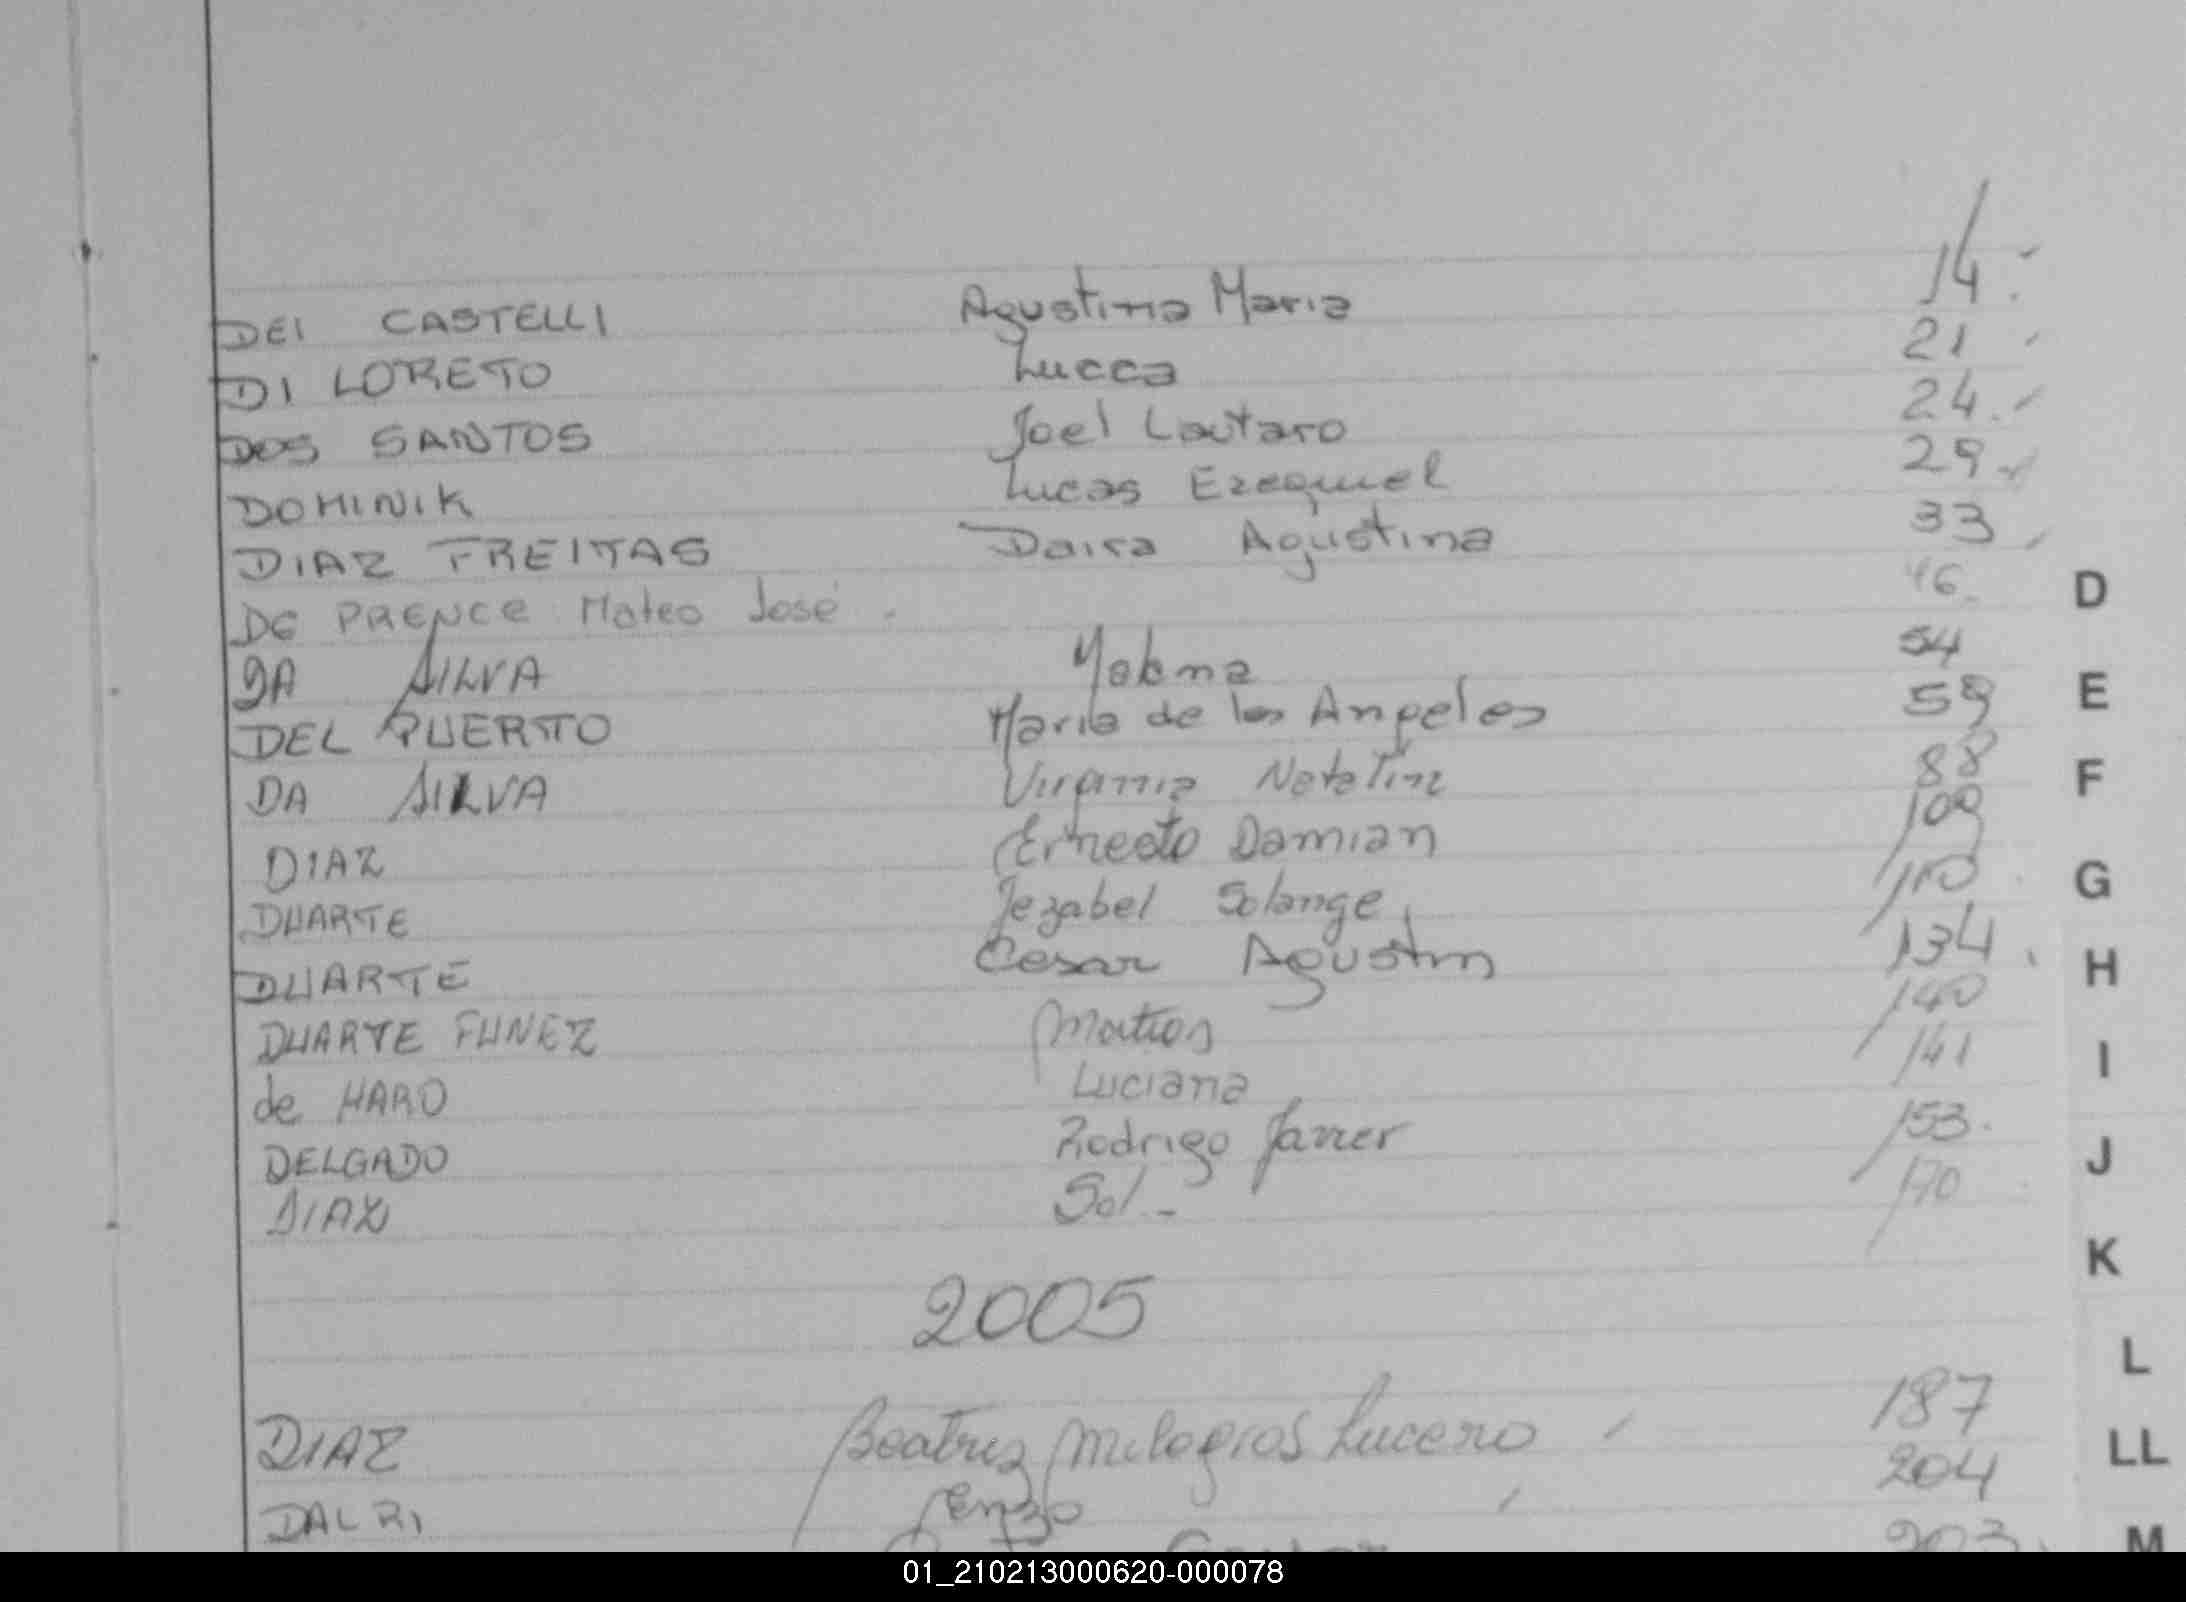 DEI CASTELLI Agustina Maria 14
DI LORETO Lucca 21
DOS SANTOS Joel Lautaro 24.
DOMINIK Lucas Ezequiel 29
DIAZ FREITAS Daira Agustina 33
DE PRENCE Mateo José. 46. D
DA SILVA 54
DEL PUERTO Maria de los Angeles 59 E
DA SILVA Virginia Natalin 88 F
DIAZ Ernesto Damian 109
DUARTE Jezabel Solange 110 G
DUARTE Cesar Agustin 134 H
DUARTE FUNEZ Matias 140
de HARO Luciana 141 I
DELGADO Rodrigo Javier 153. J
DIAZ Sol.- 170
K
2005
L
DIAZ Beatriz Milagros Lucero 187
DALRI Enzo 204 LL
203 M
01_210213000620-000078